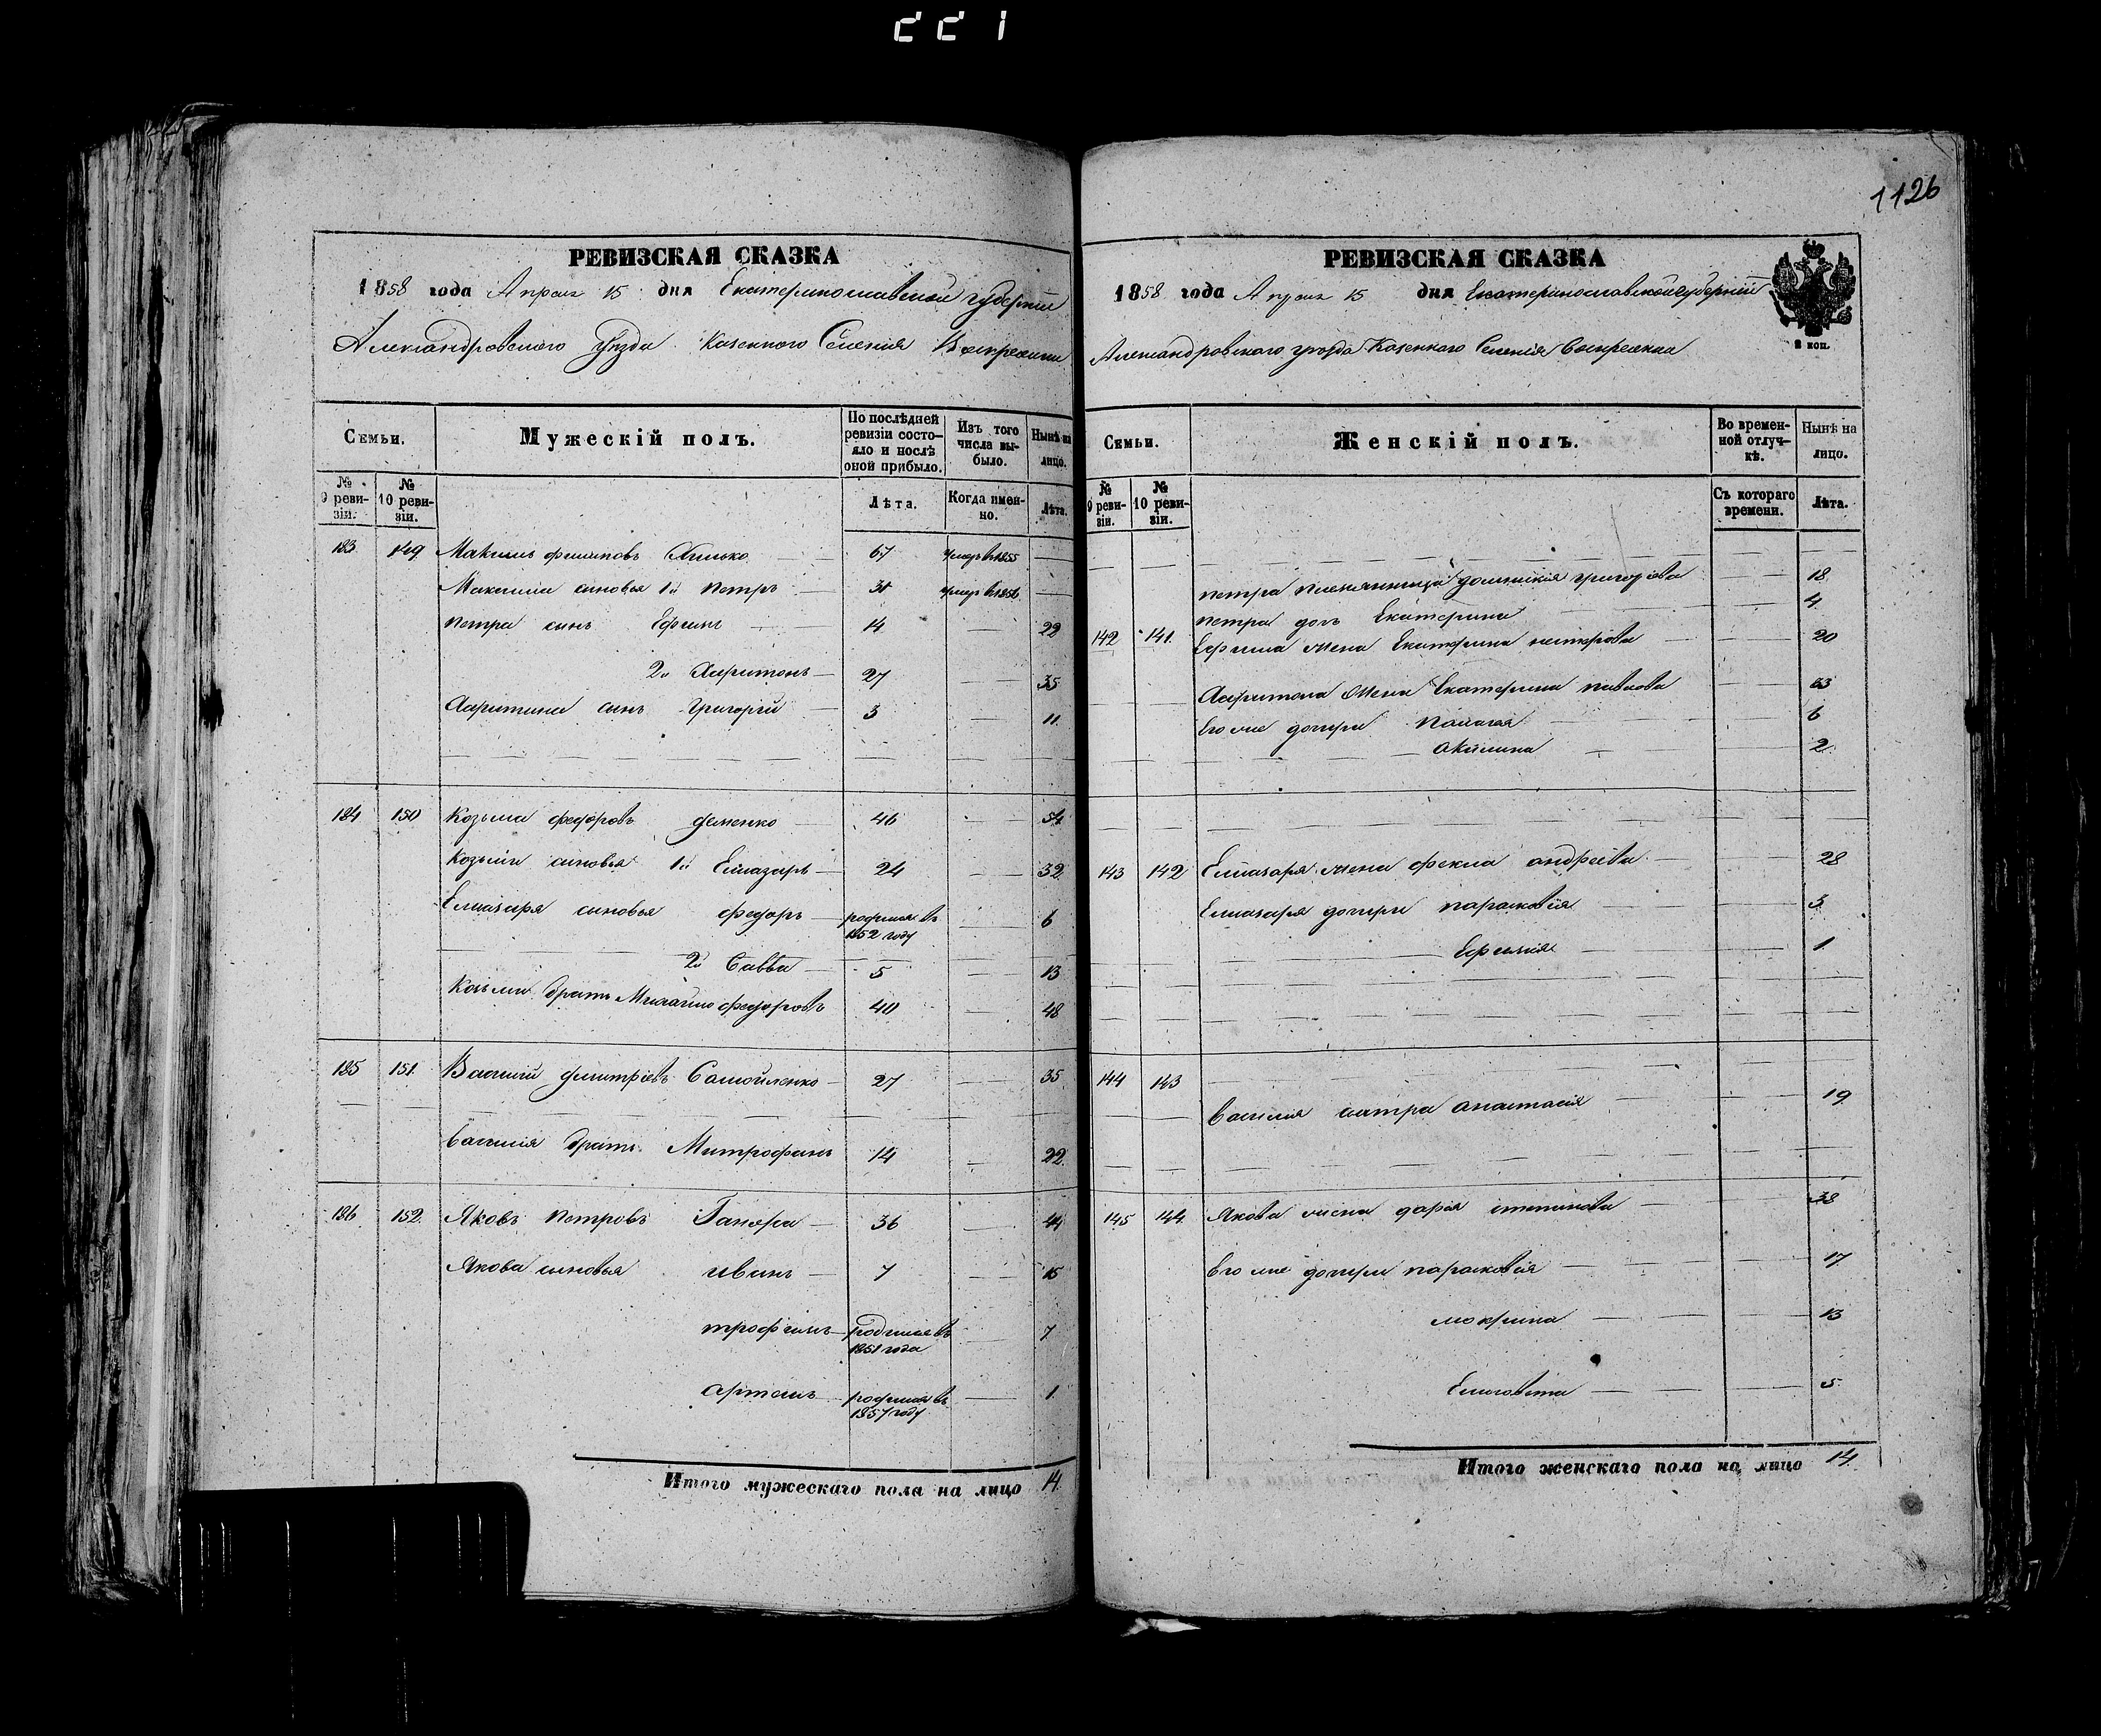 1126
РЕВИЗСКАЯ СКАЗКА
1858 года Апреля 15 дня Екатеринославской губерніи
Александровского уезда Казенного Селения Воскресенки
Семьи.
Мужескій полъ.
По послѣдней ревизіи состояло и послѣ оной прибыло.
Изъ того числа выбыло.
Нынѣ на лицо.
№ 9 ревизіи.
№ 10 ревизіи.
Лѣта.
Когда именно.
Лѣта.
183 149 Максимъ Филиповъ 67 умеръ в 1855
Максима сыновья 1й Петръ умеръ в 1856
Петра сынъ Ефимъ 14 22
2й Харитонъ 27 35
Харитона сынъ Григорій 3 11
184 150 Козьма Федоровъ Деменко 46 54
Козьмы сыновья 1й Елиазаръ 24 32
Елиазара сыновья Федоръ родился въ 1852 году 6
2й Савва 5 13
Козьмы братъ Михайло Федоровъ 40 48
185 151 Василий Дмитріевъ Самойленко 27 35
Василія братъ Митрофанъ 14 22
186 152 Яковъ Петровъ 36 44
Якова сыновья Иванъ 7 15
Трофимъ родился въ 1851 года 7
Артемъ родился въ 1857 году 1
Итого мужескаго пола на лицо 14
РЕВИЗСКАЯ СКАЗКА
1858 года Апреля 15 дня Екатеринославской губерніи
2 коп.
Александровского уезда Казенного Селенія Воскресенки
Семьи.
Женскій полъ.
Во временной отлучкѣ.
Нынѣ на лицо.
№ 9 ревизіи.
№ 10 ревизіи.
Съ котораго времени.
Лѣта.
Петра племянница Григорьева 18
Петра дочь Екатерина 4
142 141 Ефима жена Екатерина 20
Харитона жена Екатерина Павлова 33
Его же дочери Палагея 6
Акилина 2
143 142 Елиазара жена Фекла Андреева 28
Елиазара дочери Парасковія 3
Ефимія 1
144 143
Василия сестра Анастасія 19
145 144 Якова жена Дарія Степанова 38
Его же дочери Парасковія 17
Мокрина 13
Елизовета 5
Итого женскаго пола на лицо 14